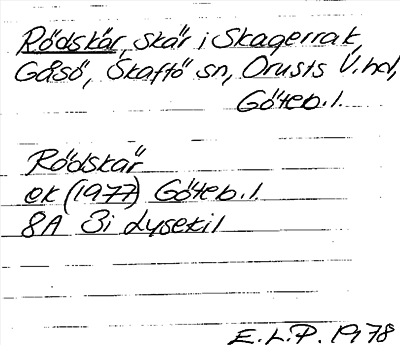 Rödskär, skär i Skagerrak,
Gåsö, Skaftö sn, Orusts V. hd,
Göteb. l.
Rödskär
ek (1977) Göteb. l.
8A 3i Lysekil
E. L. P. 1978